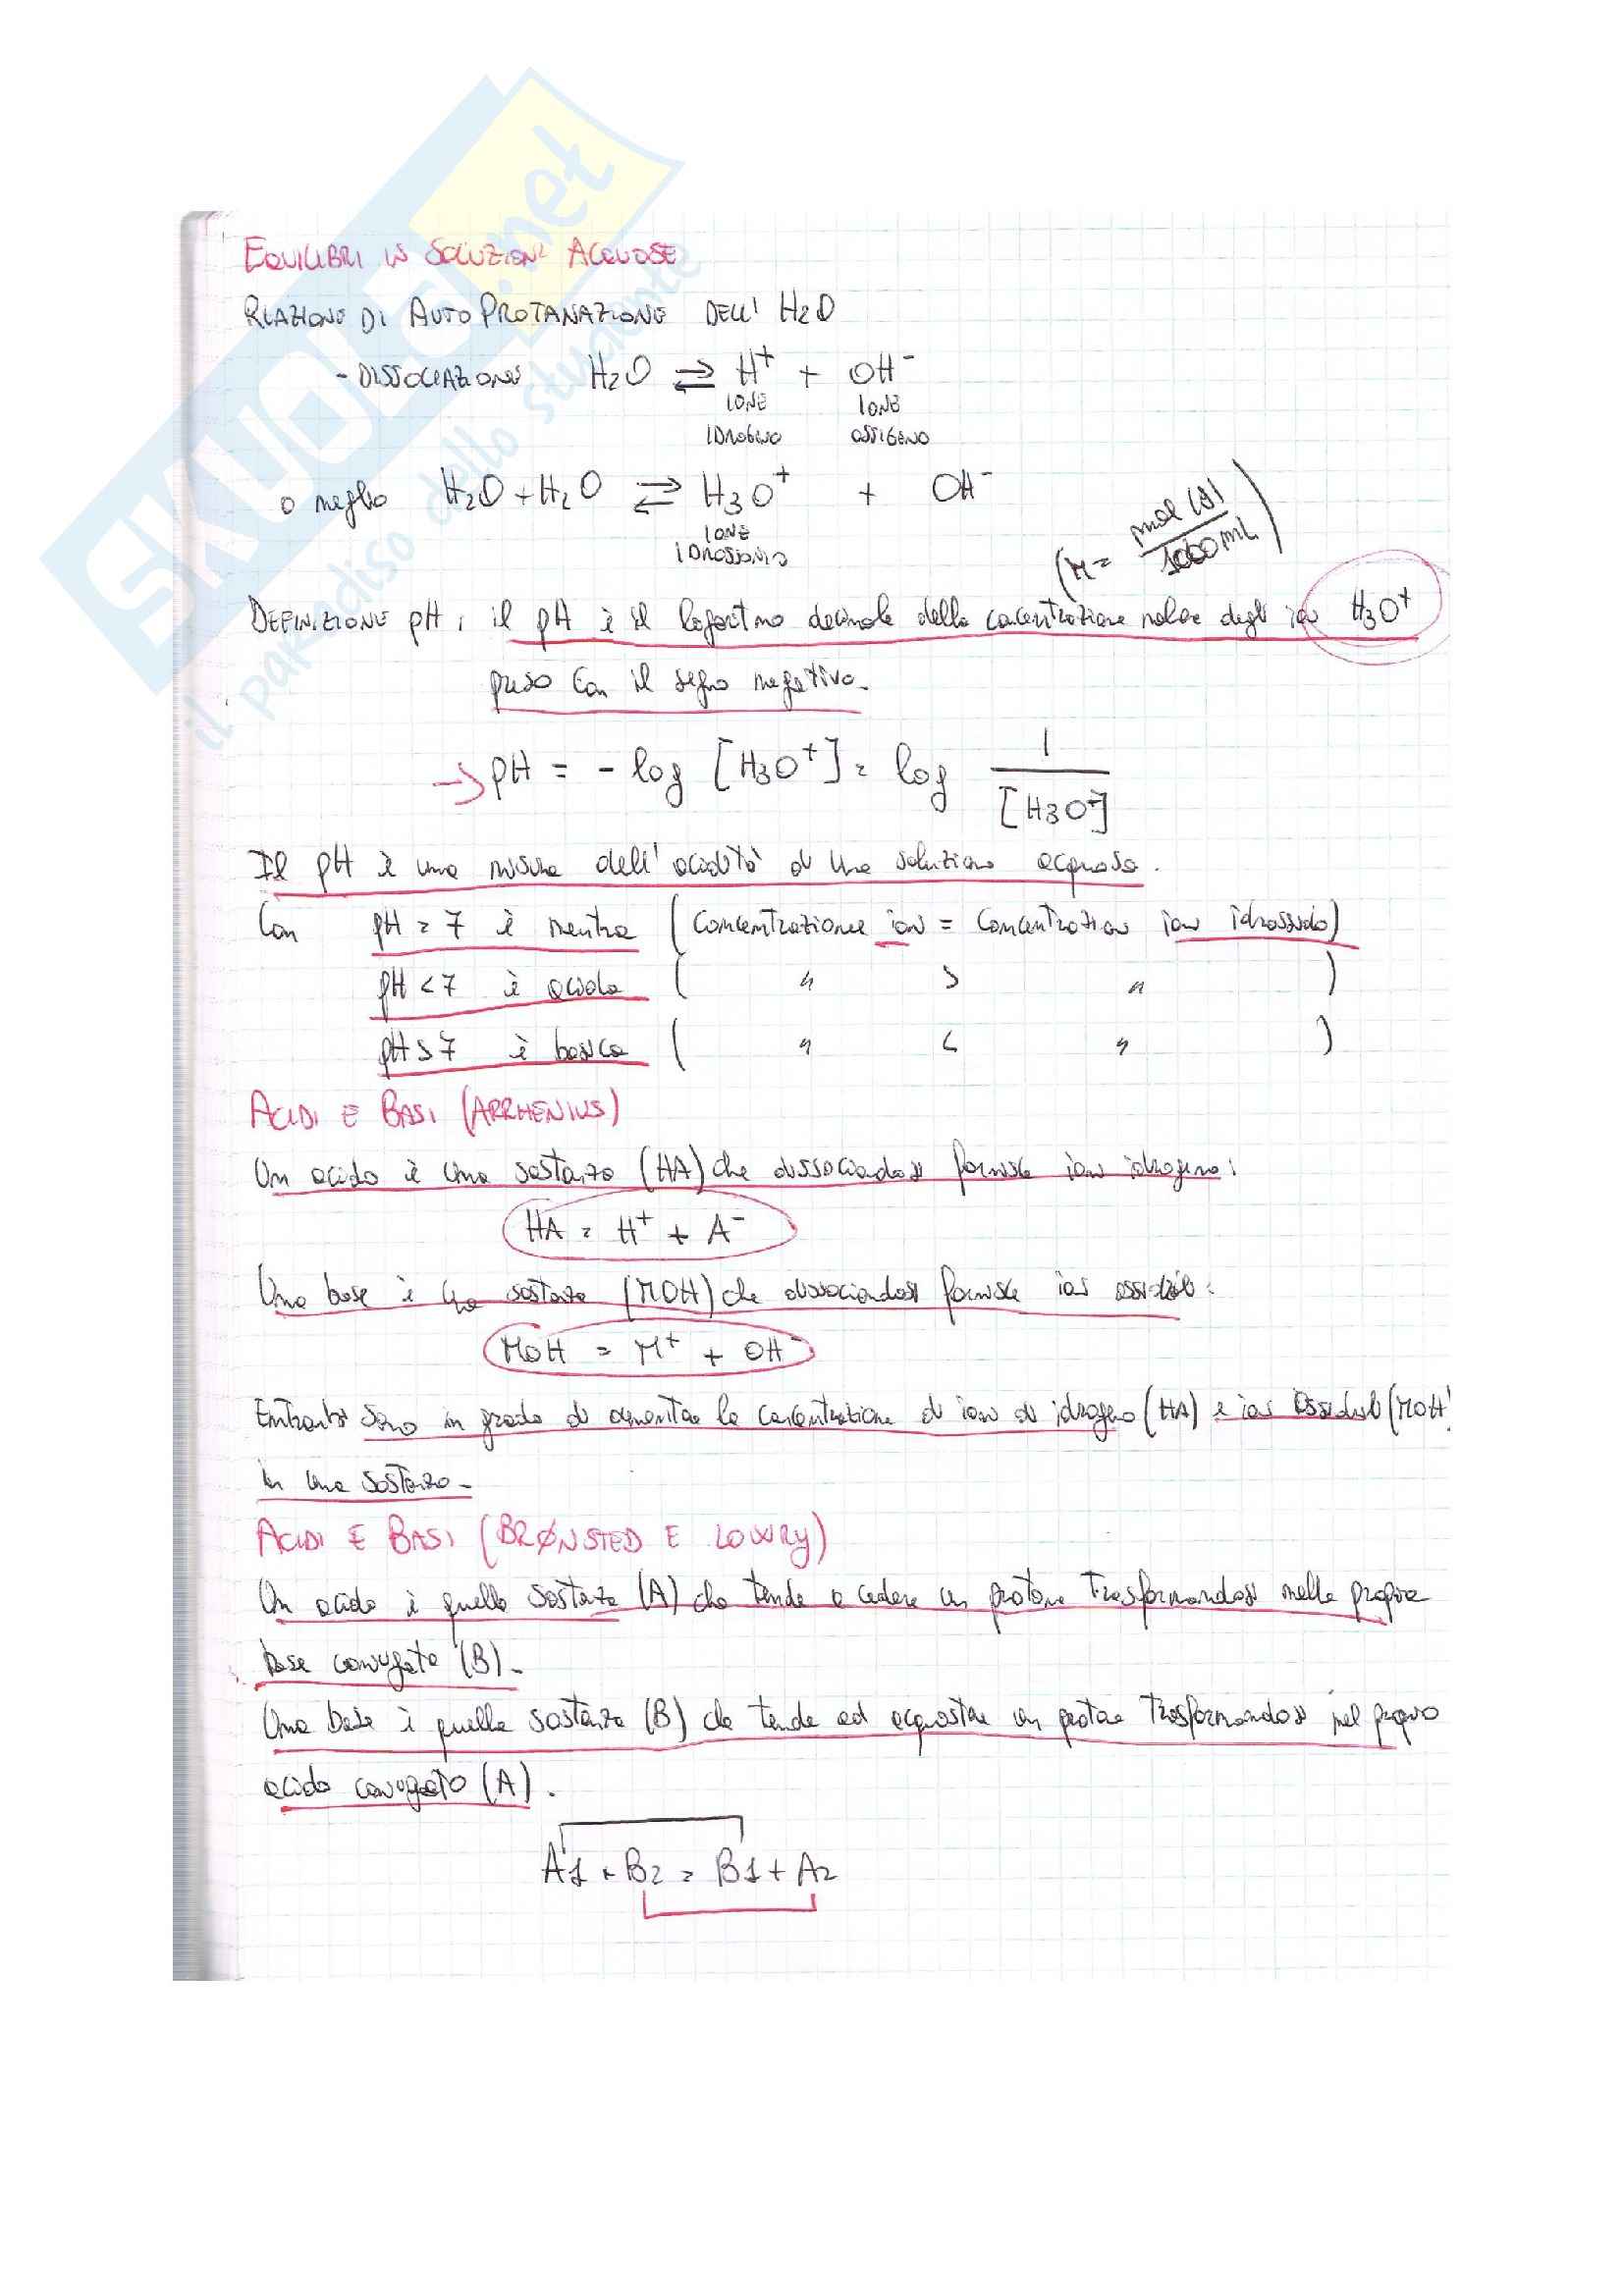 SKUOLA.net
il paradiso dello studente
EQUILIBRI IN SOLUZIONI ACQUOSE
REAZIONE DI AUTOPROTANAZIONE DELL' H2O
- DISSOCIAZIONE H2O ⇌ H+ + OH-
IONE IONE
IDROGENO OSSIGENO
o meglio H2O + H2O ⇌ H3O+ + OH-
IONE
IDROSSONIO
(M = mol (A) / 1000 mL)
DEFINIZIONE pH: il pH è il logaritmo decimale della concentrazione molare degli ioni H3O+
preso con il segno negativo.
→ pH = - log [H3O+] = log 1 / [H3O+]
Il pH è una misura dell'acidità di una soluzione acquosa.
Con pH = 7 è neutra (Concentrazione ioni = Concentrazioni ioni idrossido)
pH < 7 è acida ( " > " )
pH > 7 è basica ( " < " )
ACIDI E BASI (ARRHENIUS)
Un acido è una sostanza (HA) che dissociandosi fornisce ioni idrogeno:
HA = H+ + A-
Una base è una sostanza (MOH) che dissociandosi fornisce ioni ossidrili:
MOH = M+ + OH-
Entrambi sono in grado di aumentare la concentrazione di ioni di idrogeno (HA) e ioni ossidrili (MOH)
in una sostanza.
ACIDI E BASI (BRØNSTED E LOWRY)
Un acido è quella sostanza (A) che tende a cedere un protone trasformandosi nella propria
base coniugata (B).
Una base è quella sostanza (B) che tende ad acquistare un protone trasformandosi nel proprio
acido coniugato (A).
A1 + B2 = B1 + A2